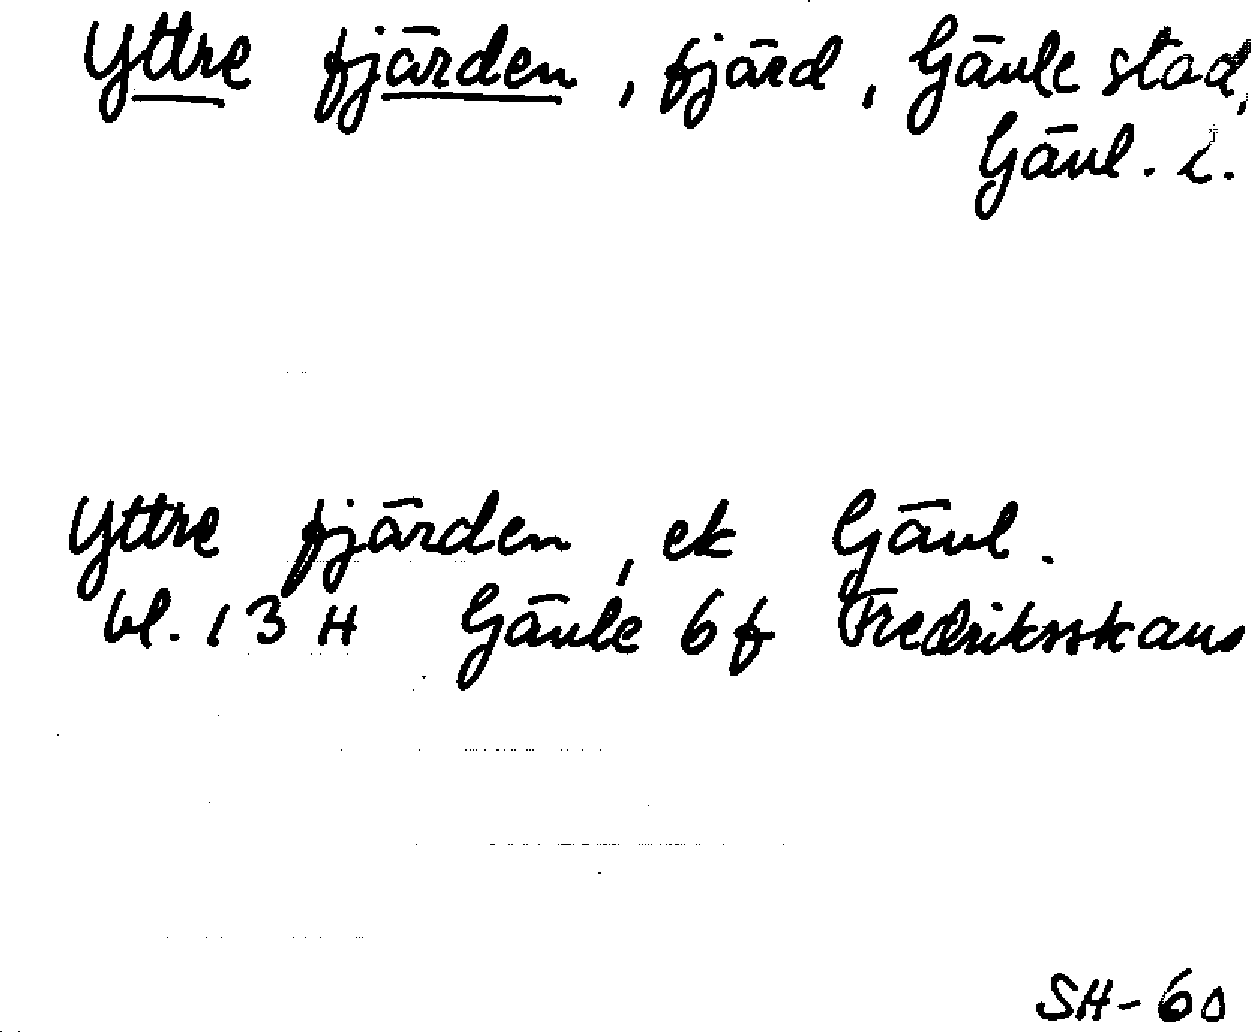 Yttre fjärden, fjärd, Gävle stad,
Gävl. l.
Yttre fjärden, ek Gävl.
bl. 13 H Gävle 6 f Fredriksskans
SH-60